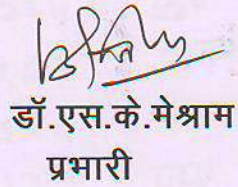 डॉ.एस.के.मेश्राम
प्रभारी